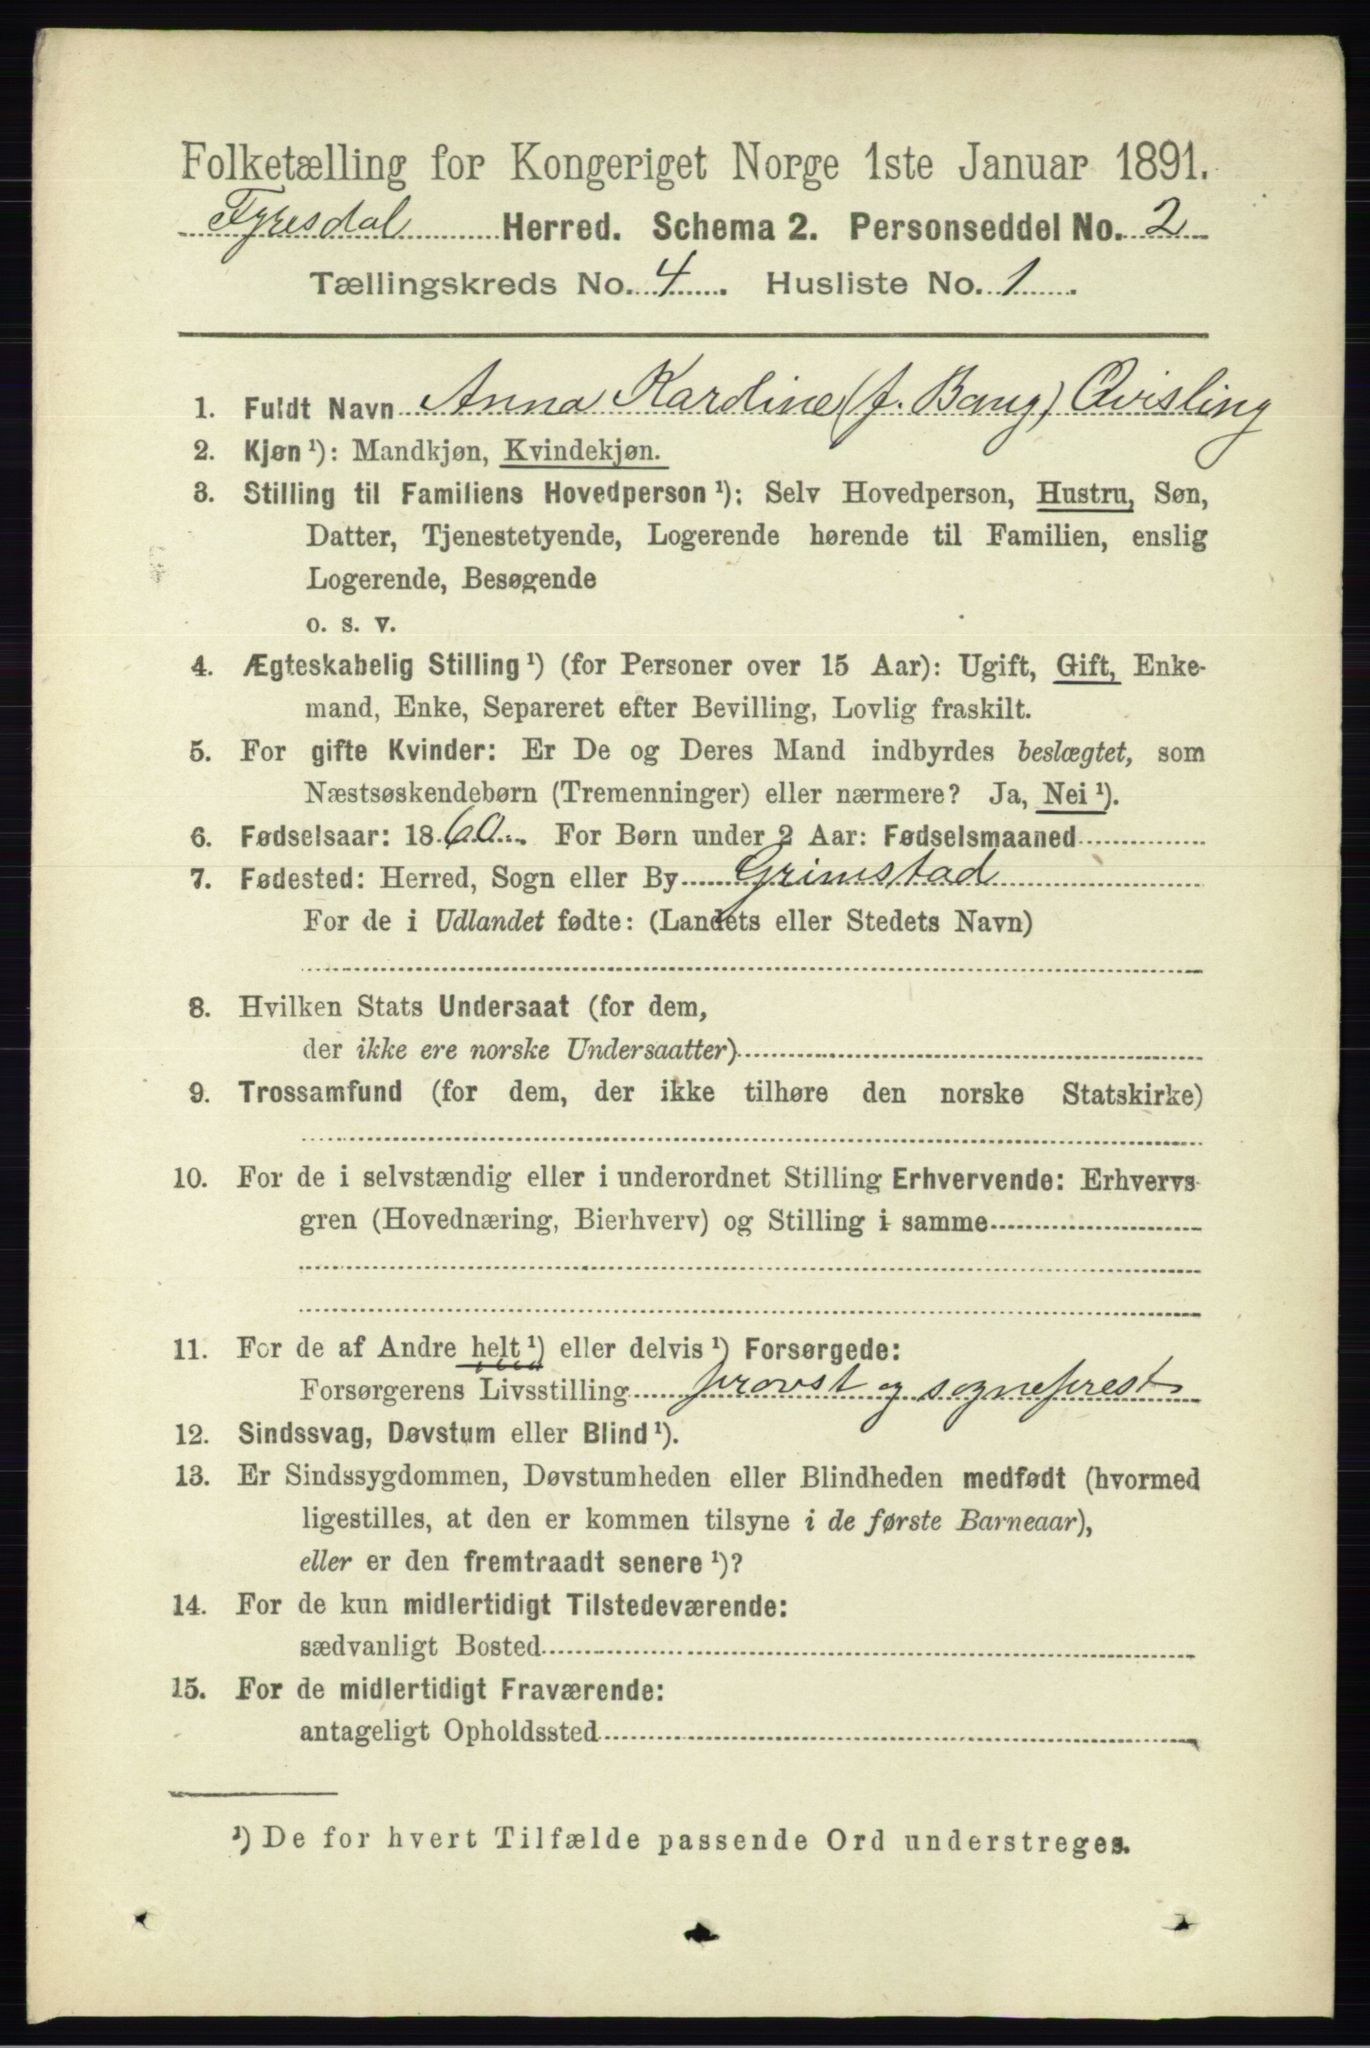 Folketælling for Kongeriget Norge 1ste Januar 1891.
Fyresdal Herred. Schema 2. Personseddel No. 2
Tællingskreds No. 4. Husliste No. 1.
1. Fuldt Navn Anna Kardine (f. Bang) Qvisling
2. Kjøn ¹): Mandkjøn, Kvindekjøn.
3. Stilling til Familiens Hovedperson ¹): Selv Hovedperson, Hustru, Søn,
Datter, Tjenestetyende, Logerende hørende til Familien, enslig
Logerende, Besøgende
o. s. v.
4. Ægteskabelig Stilling ¹) (for Personer over 15 Aar): Ugift, Gift, Enke-
mand, Enke, Separeret efter Bevilling, Lovlig fraskilt.
5. For gifte Kvinder: Er De og Deres Mand indbyrdes beslægtet, som
Næstsøskendebørn (Tremenninger) eller nærmere? Ja, Nei ¹).
6. Fødselsaar: 1860. For Børn under 2 Aar: Fødselsmaaned
7. Fødested: Herred, Sogn eller By Grimstad
For de i Udlandet fødte: (Landets eller Stedets Navn)
8. Hvilken Stats Undersaat (for dem,
der ikke ere norske Undersaatter)
9. Trossamfund (for dem, der ikke tilhøre den norske Statskirke)
10. For de i selvstændig eller i underordnet Stilling Erhvervende: Erhvervs-
gren (Hovednæring, Bierhverv) og Stilling i samme
11. For de af Andre helt ¹) eller delvis ¹) Forsørgede:
Forsørgerens Livsstilling provst og sogneprest
12. Sindssvag, Døvstum eller Blind ¹).
13. Er Sindssygdommen, Døvstumheden eller Blindheden medfødt (hvormed
ligestilles, at den er kommen tilsyne i de første Barneaar),
eller er den fremtraadt senere ¹)?
14. For de kun midlertidigt Tilstedeværende:
sædvanligt Bosted
15. For de midlertidigt Fraværende:
antageligt Opholdssted
¹) De for hvert Tilfælde passende Ord understreges.